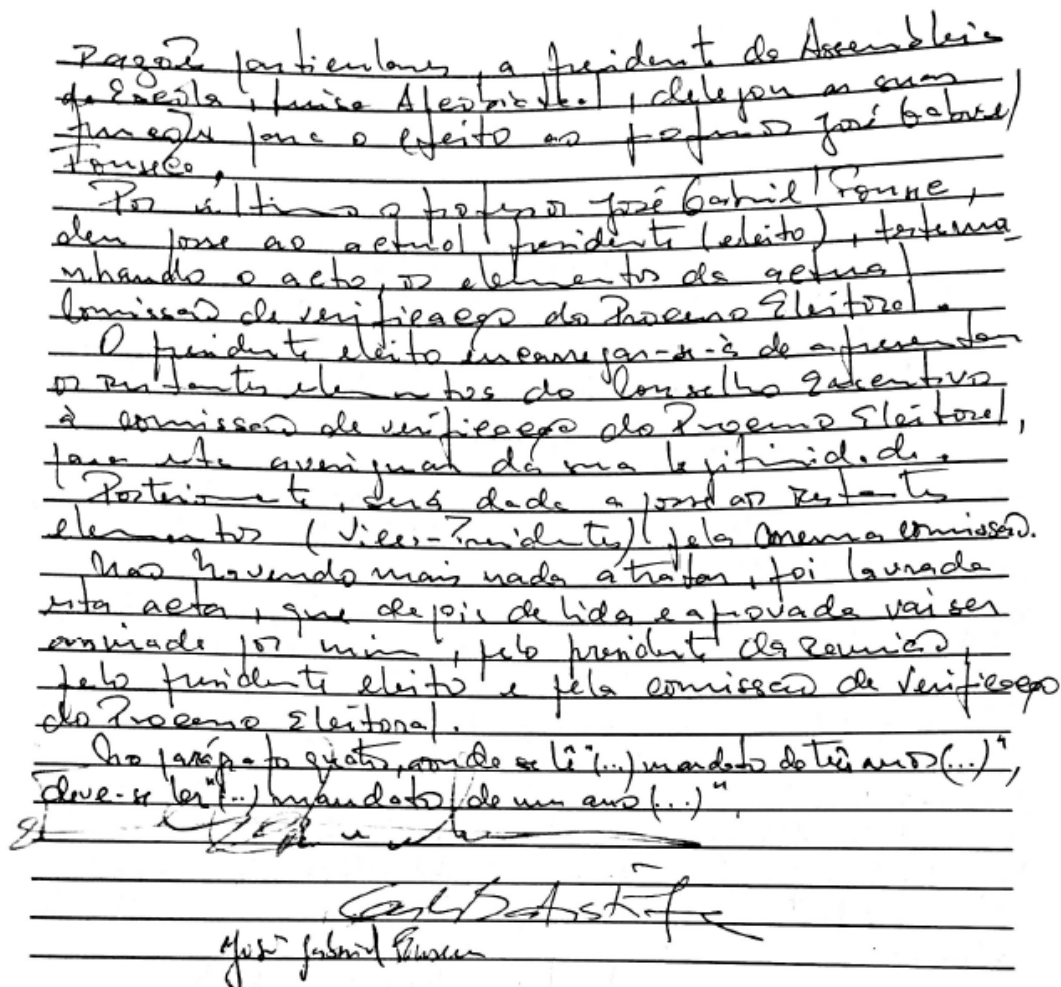 razões particulares, a presidente da Assembleia
de Escola, Luísa, delegou as suas
funções para o efeito ao professor José Gabriel
Fonseca.
Por último o professor José Gabriel Fonseca,
deu posse ao actual presidente (eleito), testemu-
nhando o acto, os elementos da actual
Comissão de verificação do Processo Eleitoral.
O presidente eleito encarregar-se-à de apresentar
os restantes elementos do Conselho Executivo
à comissão de verificação do Processo Eleitoral,
para esta averiguar da sua legitimidade.
Posteriormente, será dada a posse aos restantes
elementos (Vices-Presidentes) pela mesma comissão.
Nao havendo mais nada a tratar, foi lavrada
esta acta, que depois de lida e aprovada vai ser
assinada por mim, pelo presidente da reunião,
pelo presidente eleito e pela comissão de verificação
do Processo Eleitoral.
No parágrafo quatro, onde se lê "(...) mandato de três anos (...)",
deve-se ler "(...) mandato de um ano (...)".
José Gabriel Fonseca